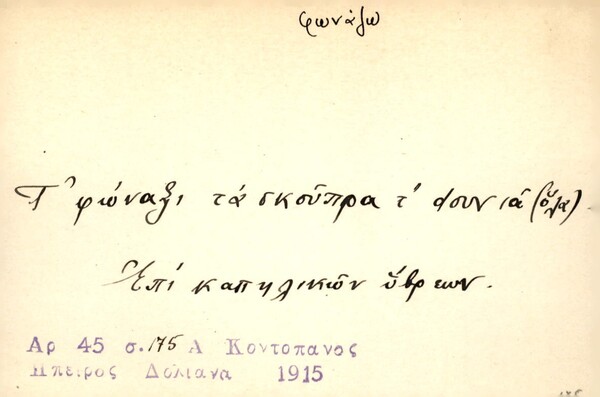 φωνάζω
Τ' φώναξι τά σκοῦπρα τ' ντουνιᾶ (ὅλα).
Ἐπί καπηλικῶν ὕβρεων.
Αρ 45 σ. 175 Α Κοντοπανος
Ηπειρος Δολιανα 1915